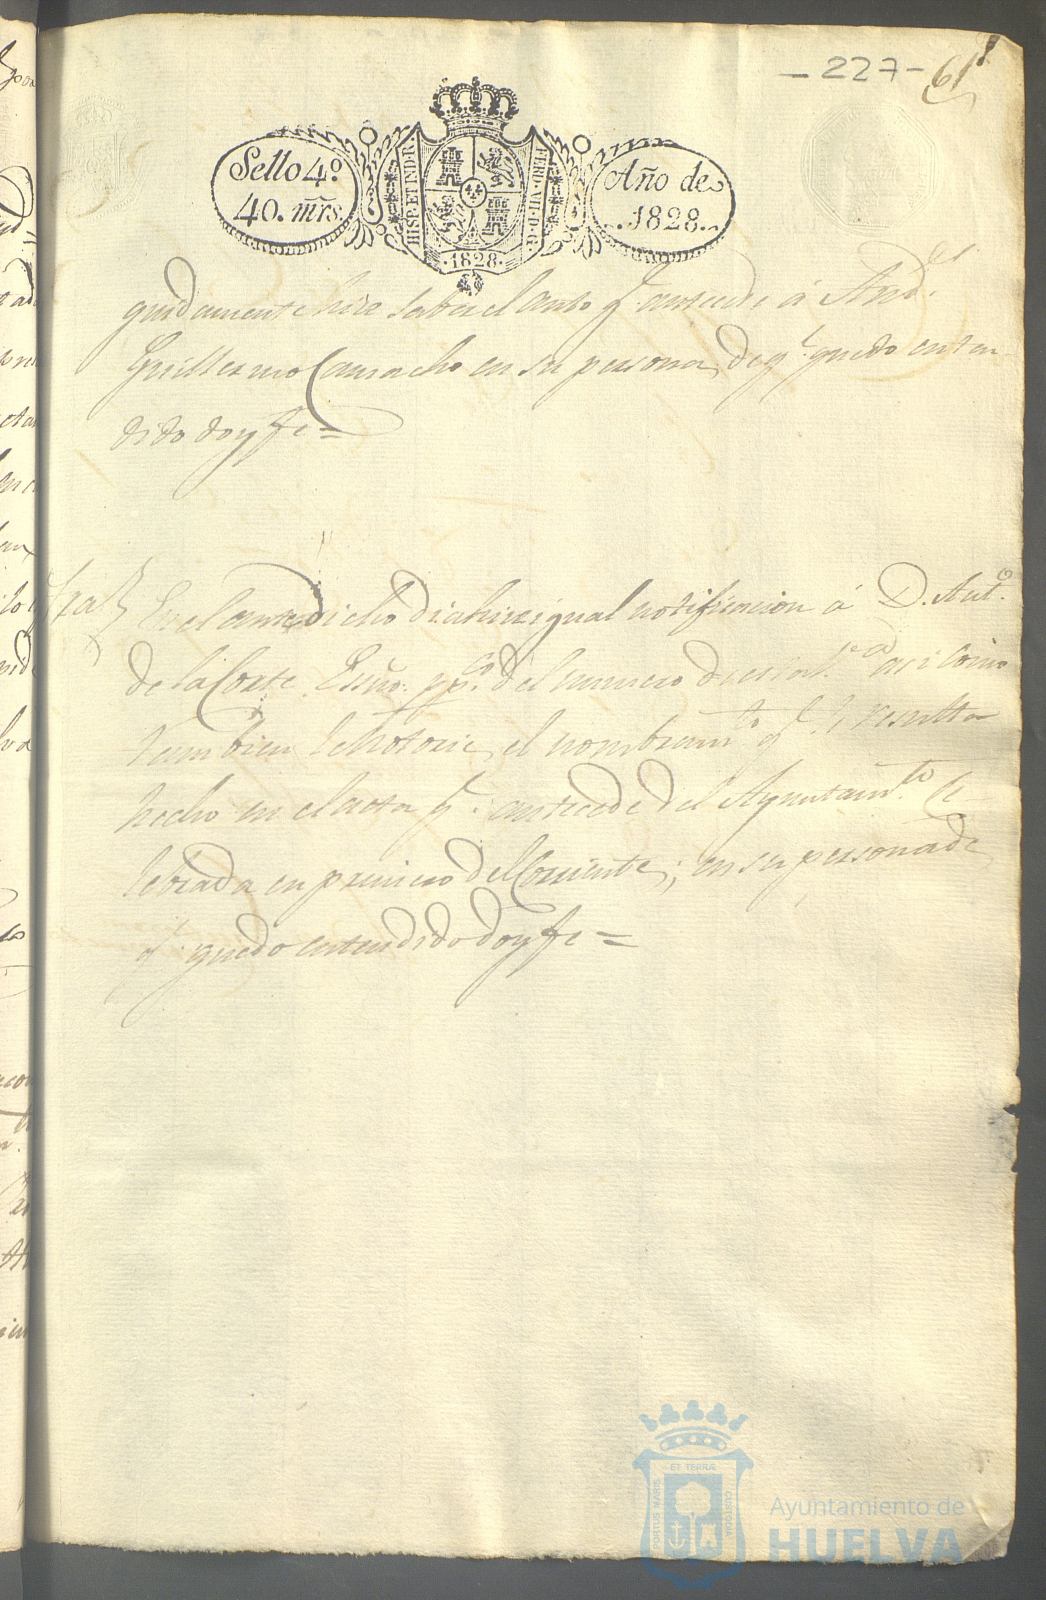 - 227 - 61
Sello 4º
40. mrs.
HISP. ET IND. R.
FERD. VII. D. G.
1828.
Año de
1828.
guidamente hice saber el auto q. antecede a And.es
Guillermo Camacho en su persona, de q.e quedo enten
dido doy fe =
Otra En el antedicho dia hize igual notificacion á D. Ant.o
de la Corte Essno. pp.co del numero de esta asi como
tambien le hotorie el nombram.to q. le resulta
hecho en el acta q. antecede del Ayuntam.to Ce-
lebrada en primero del Corriente; en su persona de
q. quedo entendido doy fe =
ET TERRÆ
PORTUS MARIS
CUSTODIA
Ayuntamiento de
HUELVA